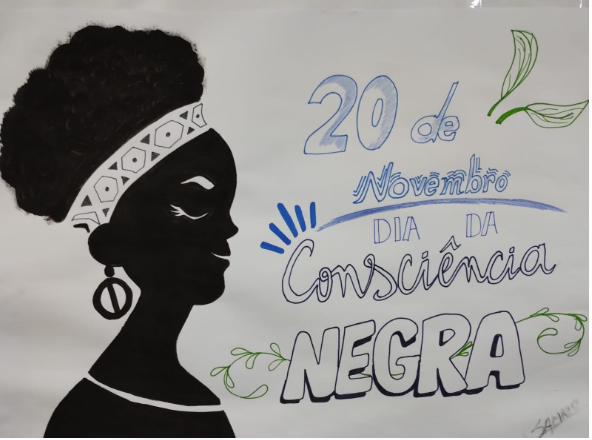 20 de
Novembro
DIA DA
Consciência
NEGRA